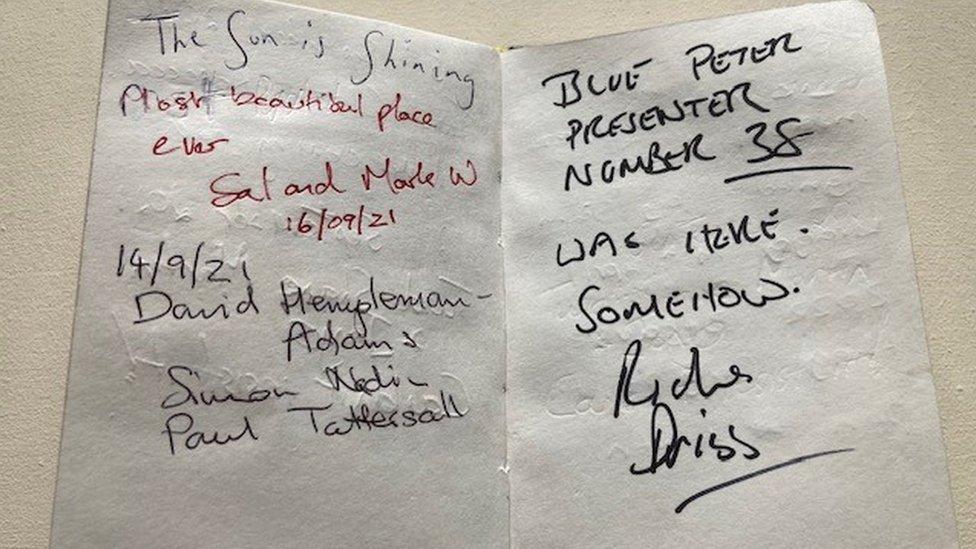 The Sun is Shining
Most beautiful place
ever
Sal and Mark W
16/09/21
14/9/21
David Hempleman-
Adams
Simon
Paul Tattersall
BLUE PETER
PRESENTER
NUMBER 38
WAS HERE.
SOMEHOW.
Richie
Driss